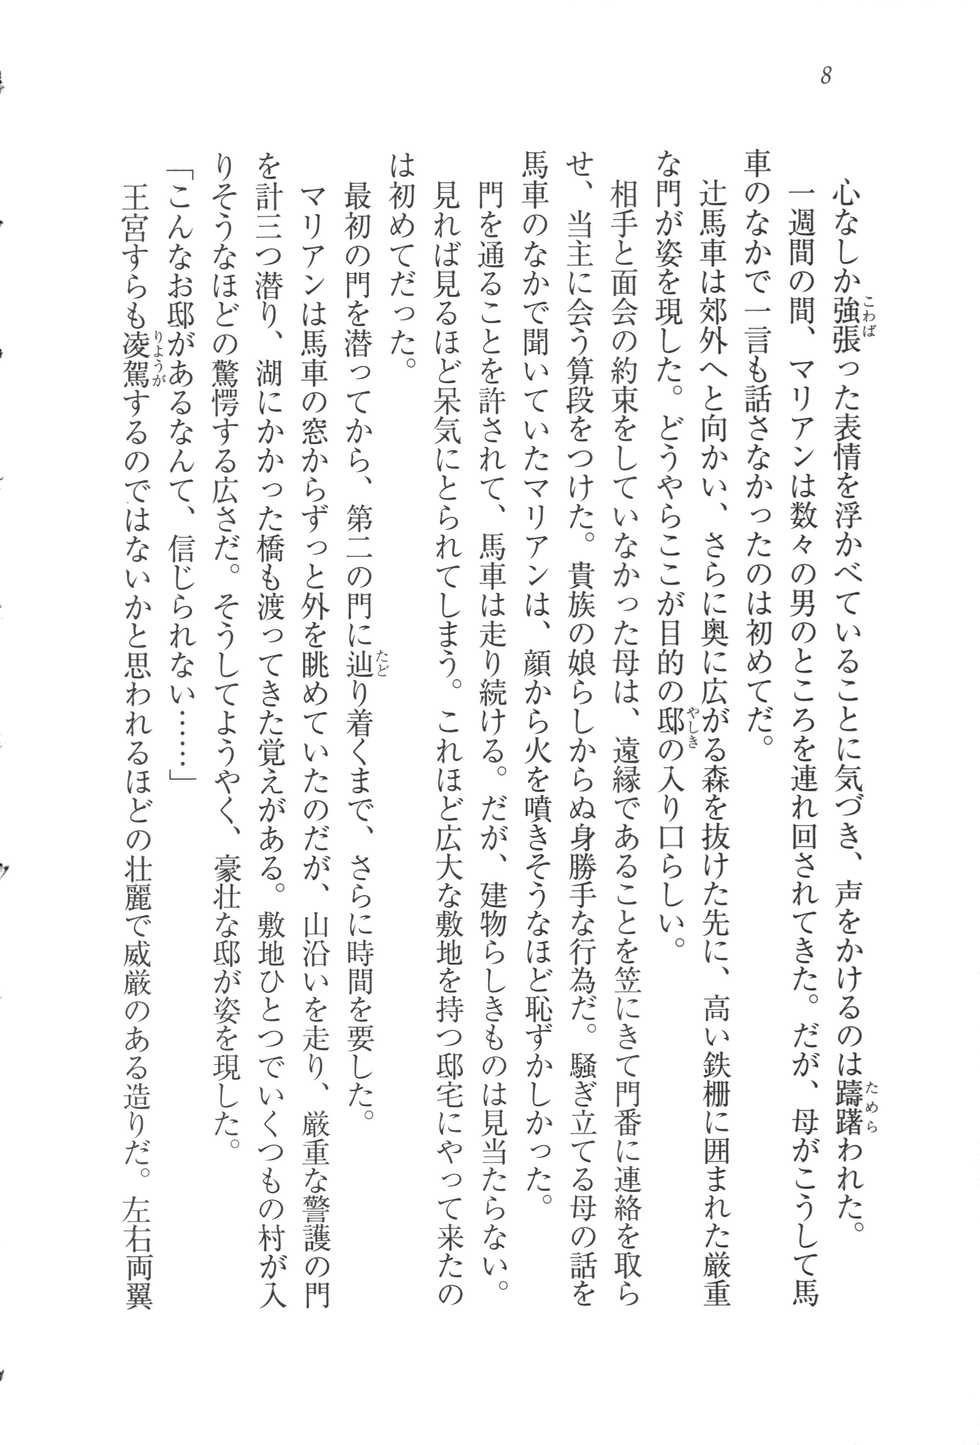 8
心なしか強張った表情を浮かべていることに気づき、声をかけるのは躊躇われた。
一週間の間、マリアンは数々の男のところを連れ回されてきた。だが、母がこうして馬
車のなかで一言も話さなかったのは初めてだ。
辻馬車は郊外へと向かい、さらに奥に広がる森を抜けた先に、高い鉄柵に囲まれた厳重
な門が姿を現した。どうやらここが目的の邸の入り口らしい。
相手と面会の約束をしていなかった母は、遠縁であることを笠にきて門番に連絡を取ら
せ、当主に会う算段をつけた。貴族の娘らしからぬ身勝手な行為だ。騒ぎ立てる母の話を
馬車のなかで聞いていたマリアンは、顔から火を噴きそうなほど恥ずかしかった。
門を通ることを許されて、馬車は走り続ける。だが、建物らしきものは見当たらない。
見れば見るほど呆気にとられてしまう。これほど広大な敷地を持つ邸宅にやって来たの
は初めてだった。
最初の門を潜ってから、第二の門に辿り着くまで、さらに時間を要した。
マリアンは馬車の窓からずっと外を眺めていたのだが、山沿いを走り、厳重な警護の門
を計三つ潜り、湖にかかった橋も渡ってきた覚えがある。敷地ひとつでいくつもの村が入
りそうなほどの驚愕する広さだ。そうしてようやく、豪壮な邸が姿を現した。
「こんなお邸があるなんて、信じられない……」
王宮すらも凌駕するのではないかと思われるほどの壮麗で威厳のある造りだ。左右両翼
こわば
ためら
やしき
たど
りょうが